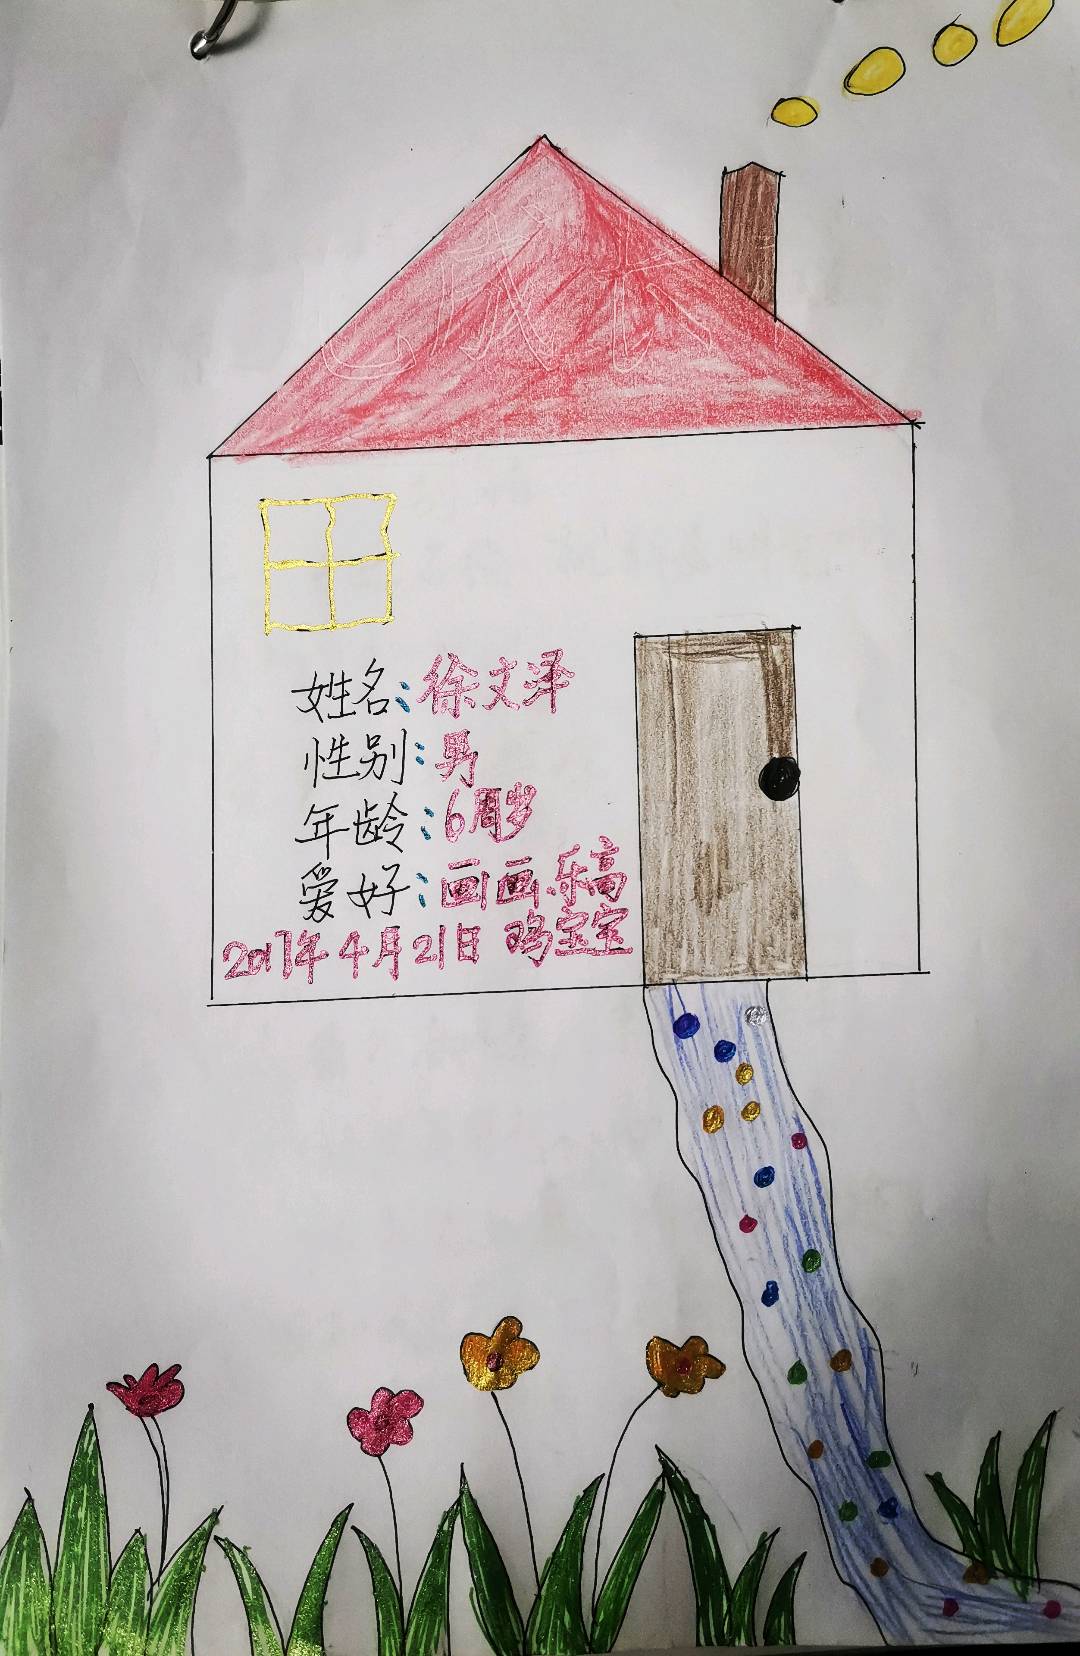 姓名:徐文泽
性别:男
年龄:6周岁
爱好:画画.乐高
2017年4月21日 鸡宝宝